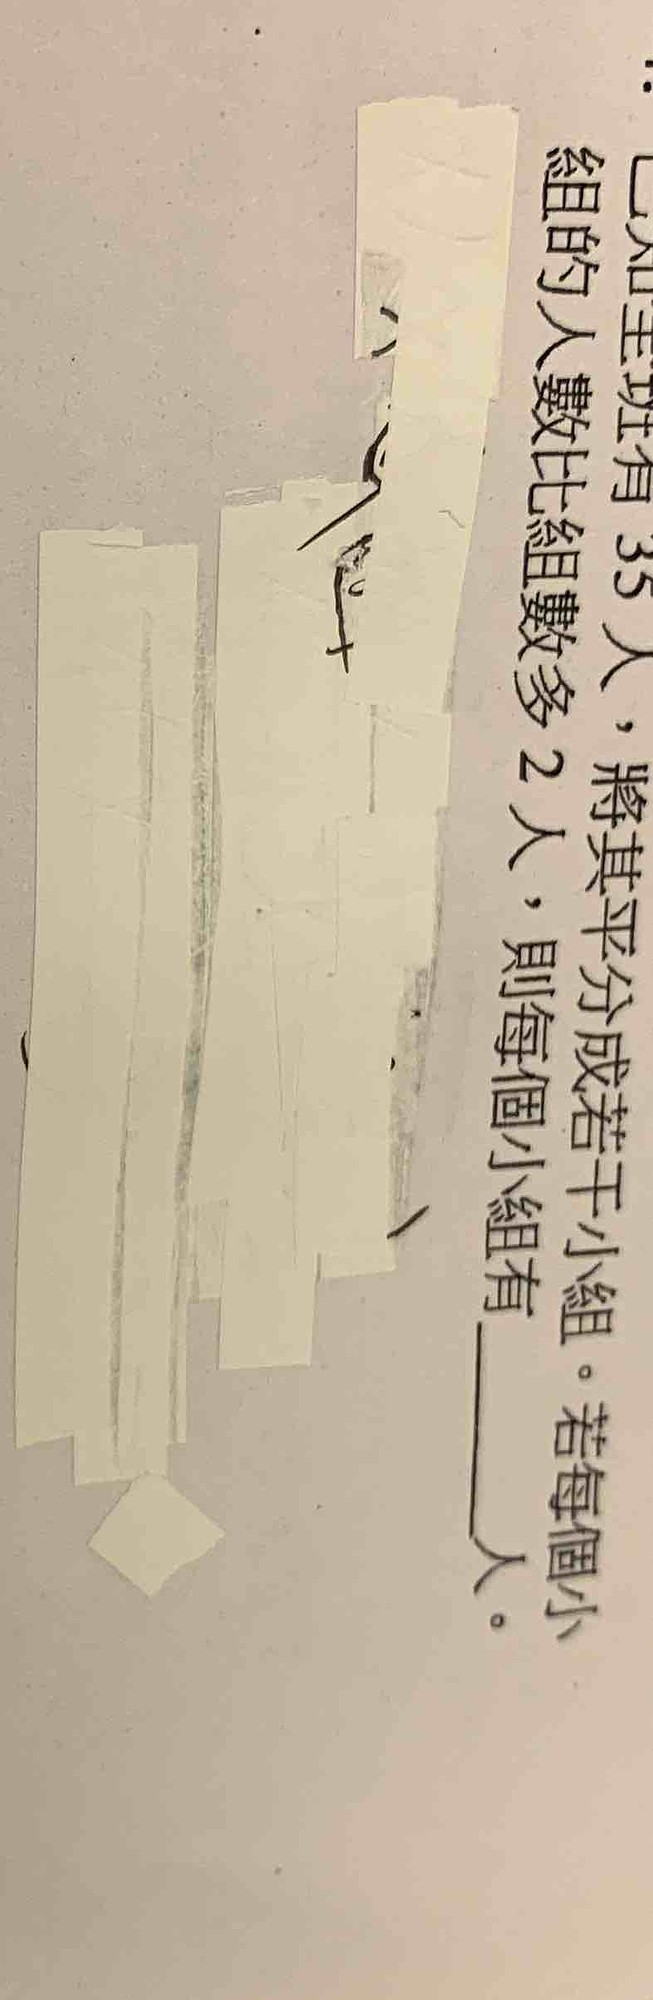 已知全班有 35 人，將其平分成若干小組。若每個小
組的人數比組數多 2 人，則每個小組有______人。